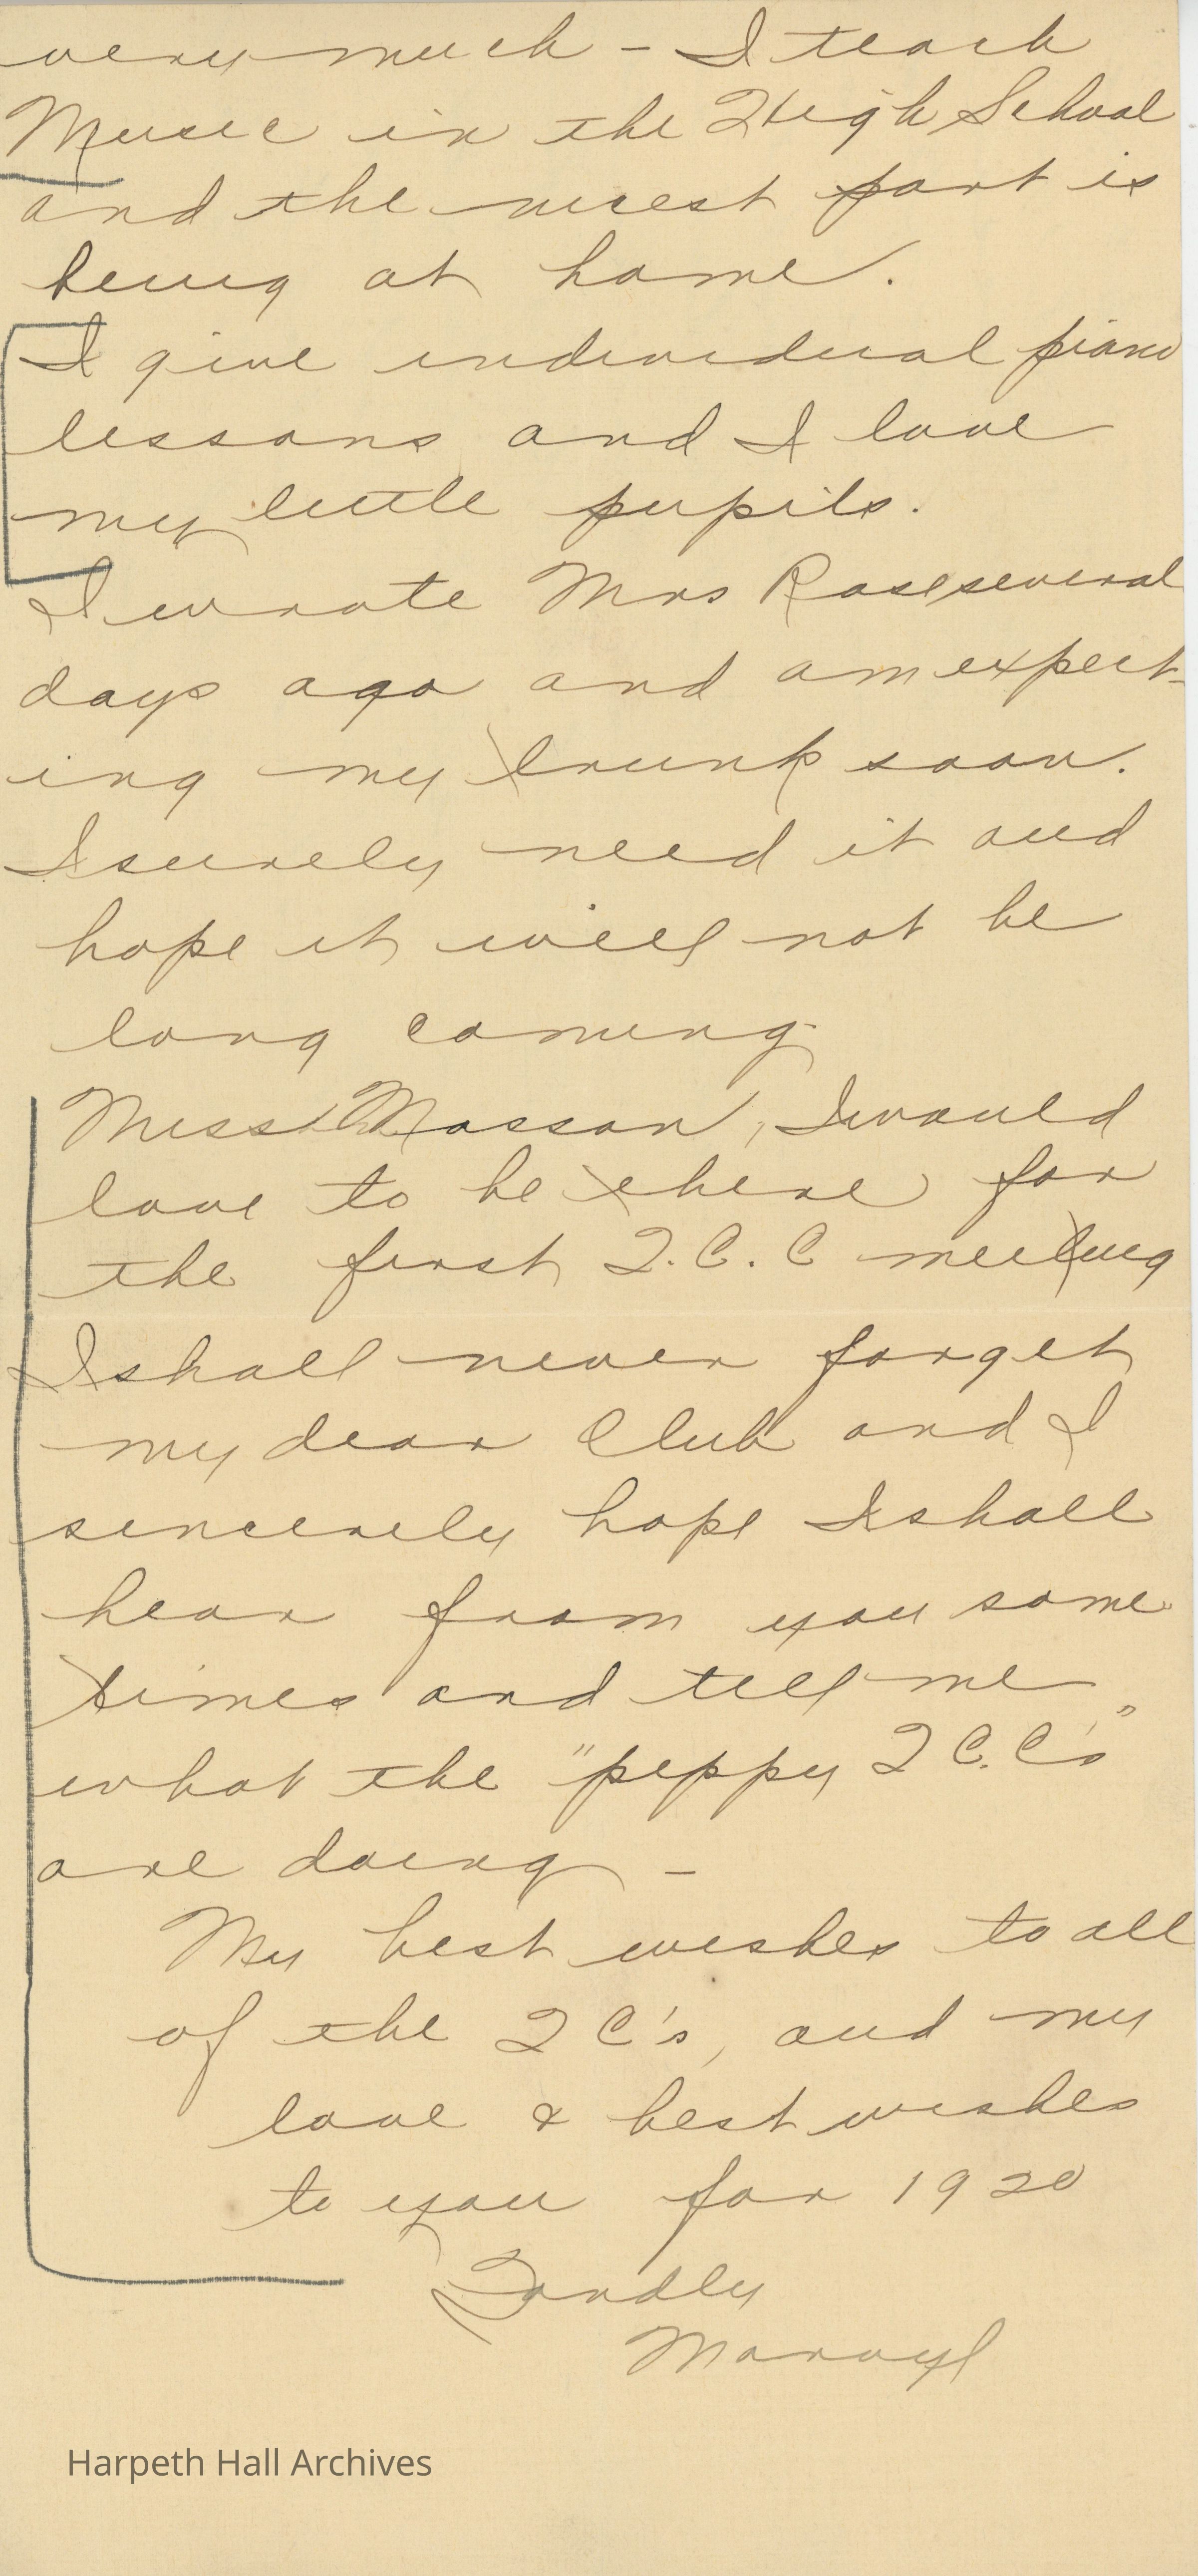 very much - I teach
Music in the High School
and the nicest part is
being at home.
I give individual piano
lessons and I love
my little pupils.
I wrote Mrs Rose several
days ago and am expect-
ing my trunk soon.
I surely need it and
hope it will not be
long coming.
Miss Masson, I would
love to be there for
the first T.C.C meeting
I shall never forget
my dear Club and I
sincerely hope I shall
hear from you some
times and tell me
what the "peppy T C.C's"
are doing -
My best wishes to all
of the T C's, and my
love & best wishes
to you for 1920
Fondly
Harpeth Hall Archives